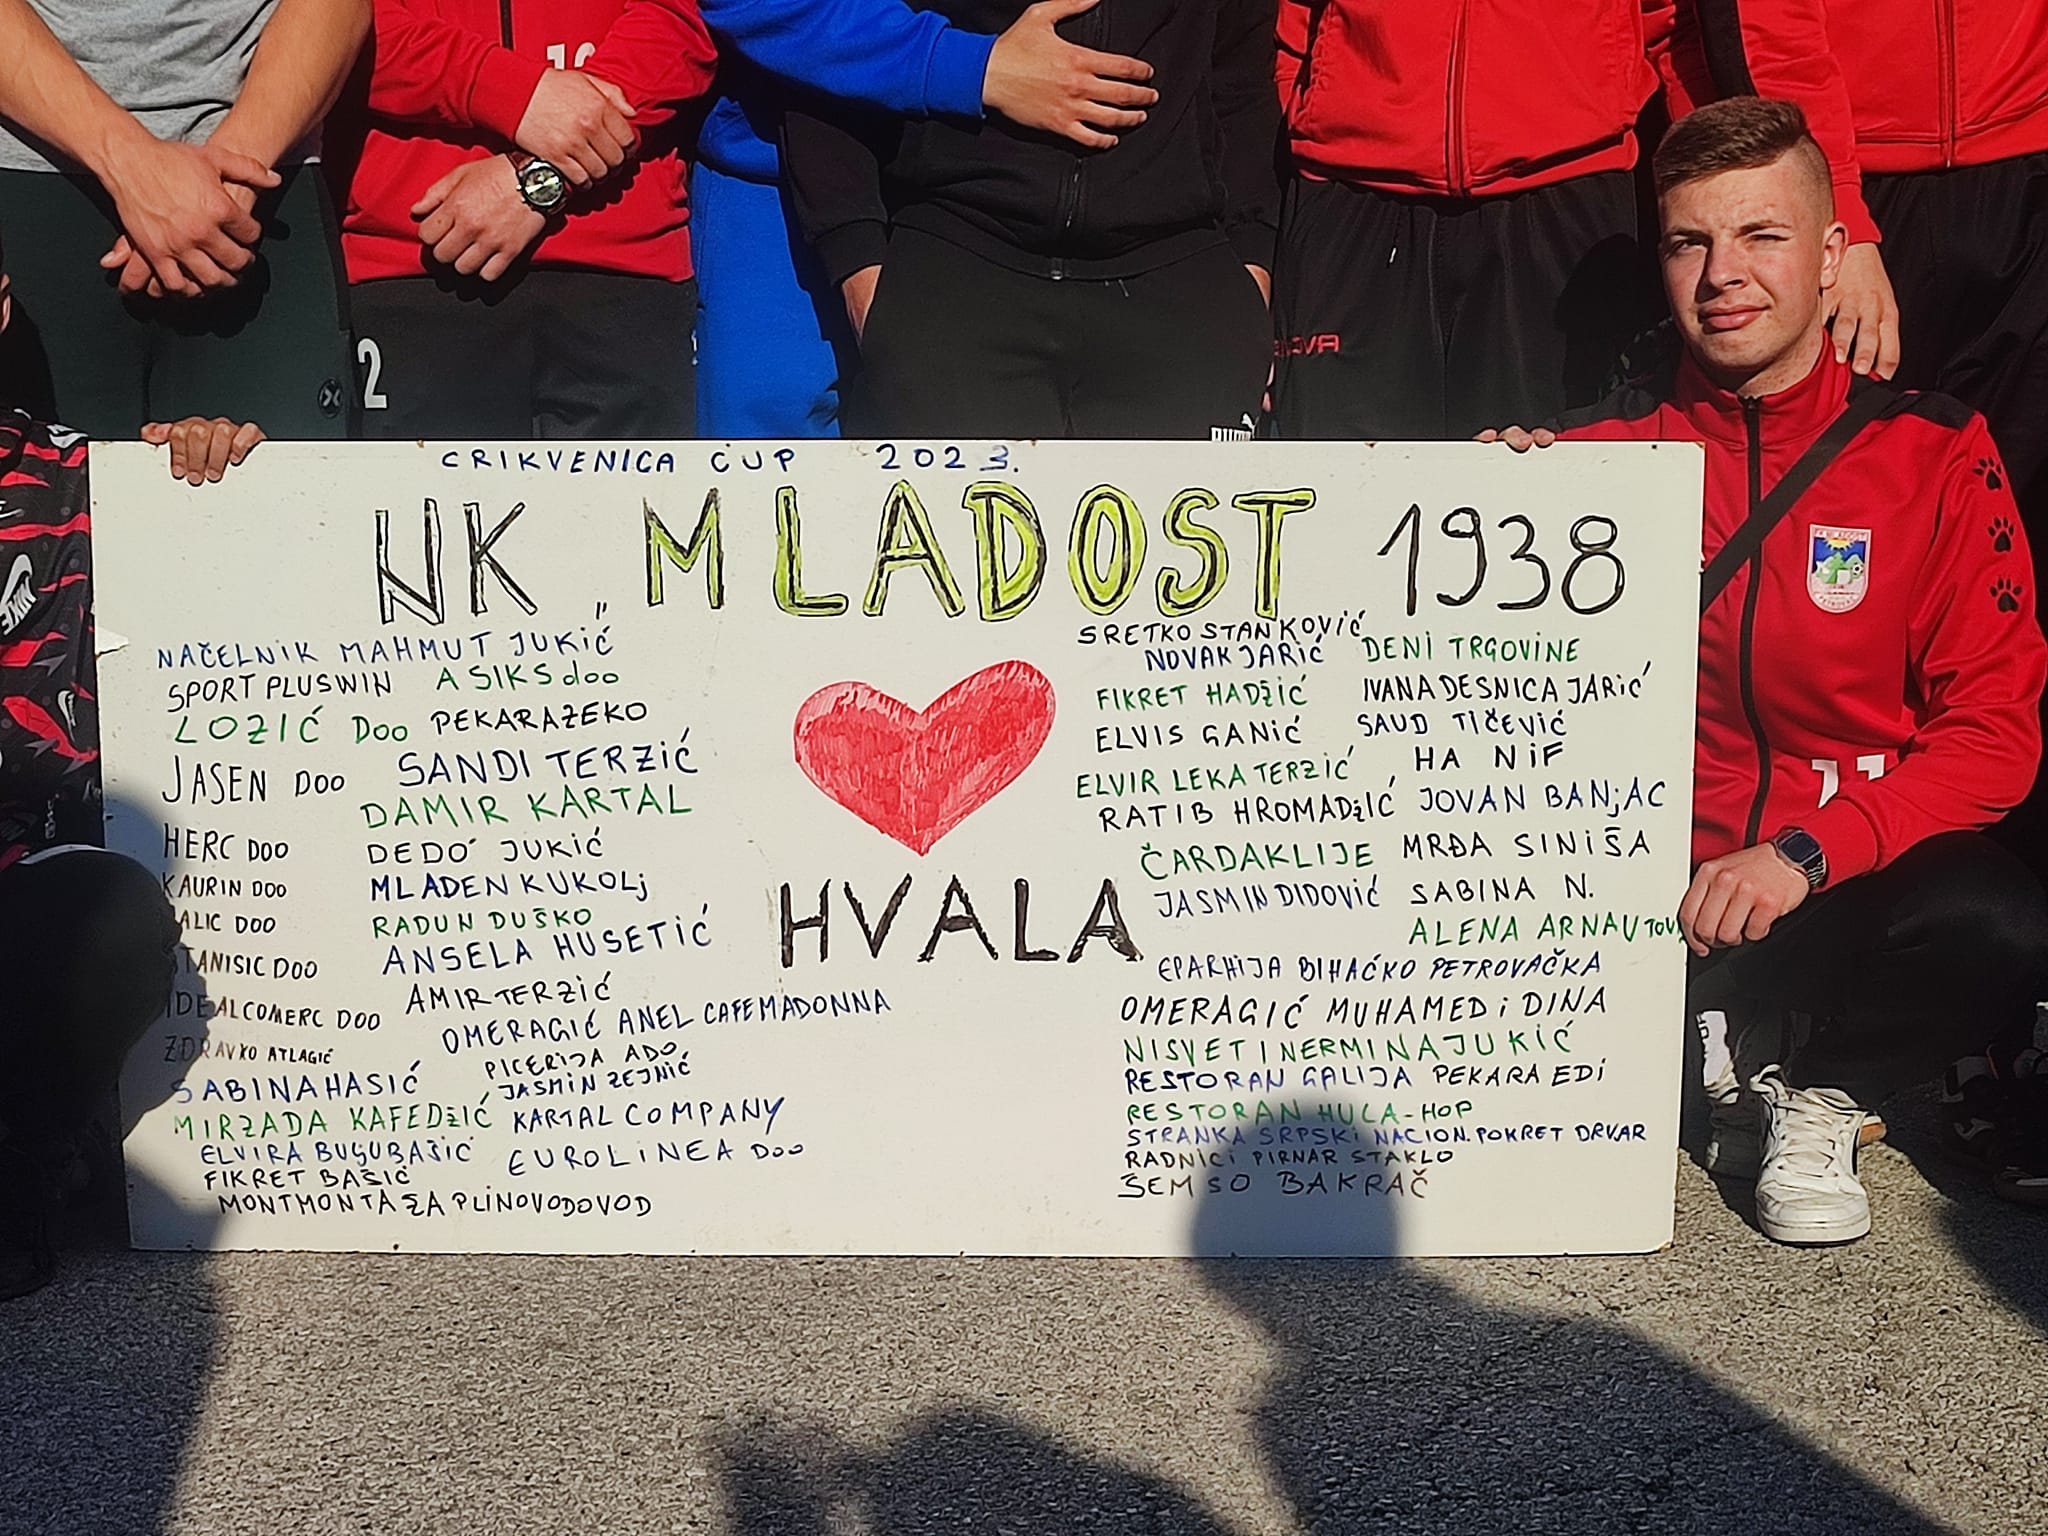 CRIKVENICA CUP 2023.
NK "MLADOST 1938
NAČELNIK MAHMUT JUKIĆ
SPORT PLUSWIN ASIKS doo
LOZIĆ Doo PEKARAZEKO
JASEN Doo SANDI TERZIĆ
DAMIR KARTAL
HERC DOO DEDO JUKIĆ
KAURIN DOO MLADEN KUKOLj
ALIC DOO RADUN DUŠKO
STANISIC DOO ANSELA HUSETIĆ
IDEALCOMERC DOO AMIR TERZIĆ
OMERAGIĆ ANEL CAFE MADONNA
ZDRAVKO ATLAGIĆ PICERIJA ADO
SABINA HASIĆ JASMIN ZEJNIĆ
MIRZADA KAFEDŽIĆ KARTAL COMPANY
ELVIRA BUGUBAŠIĆ EUROLINEA Doo
FIKRET BAŠIĆ
MONTMONTAŽA PLINOVODOVOD
HVALA
SRETKO STANKOVIĆ
NOVAK JARIĆ DENI TRGOVINE
FIKRET HADŽIĆ IVANA DESNICA JARIĆ
ELVIS GANIĆ SAUD TIČEVIĆ
ELVIR LEKA TERZIĆ HA NIF
RATIB HROMADŽIĆ JOVAN BANJAC
ČARDAKLIJE MRĐA SINIŠA
JASMIN DIDOVIĆ SABINA N.
ALENA ARNAUTOV
EPARHIJA BIHAĆKO PETROVAČKA
OMERAGIĆ MUHAMED i DINA
NISVET I NERMINA JUKIĆ
RESTORAN GALIJA PEKARA EDI
RESTORAN HULA-HOP
STRANKA SRPSKI NACION. POKRET DRVAR
RADNICI PIRNAR STAKLO
ŠEMSO BAKRAČ
2
PETROVAC
11